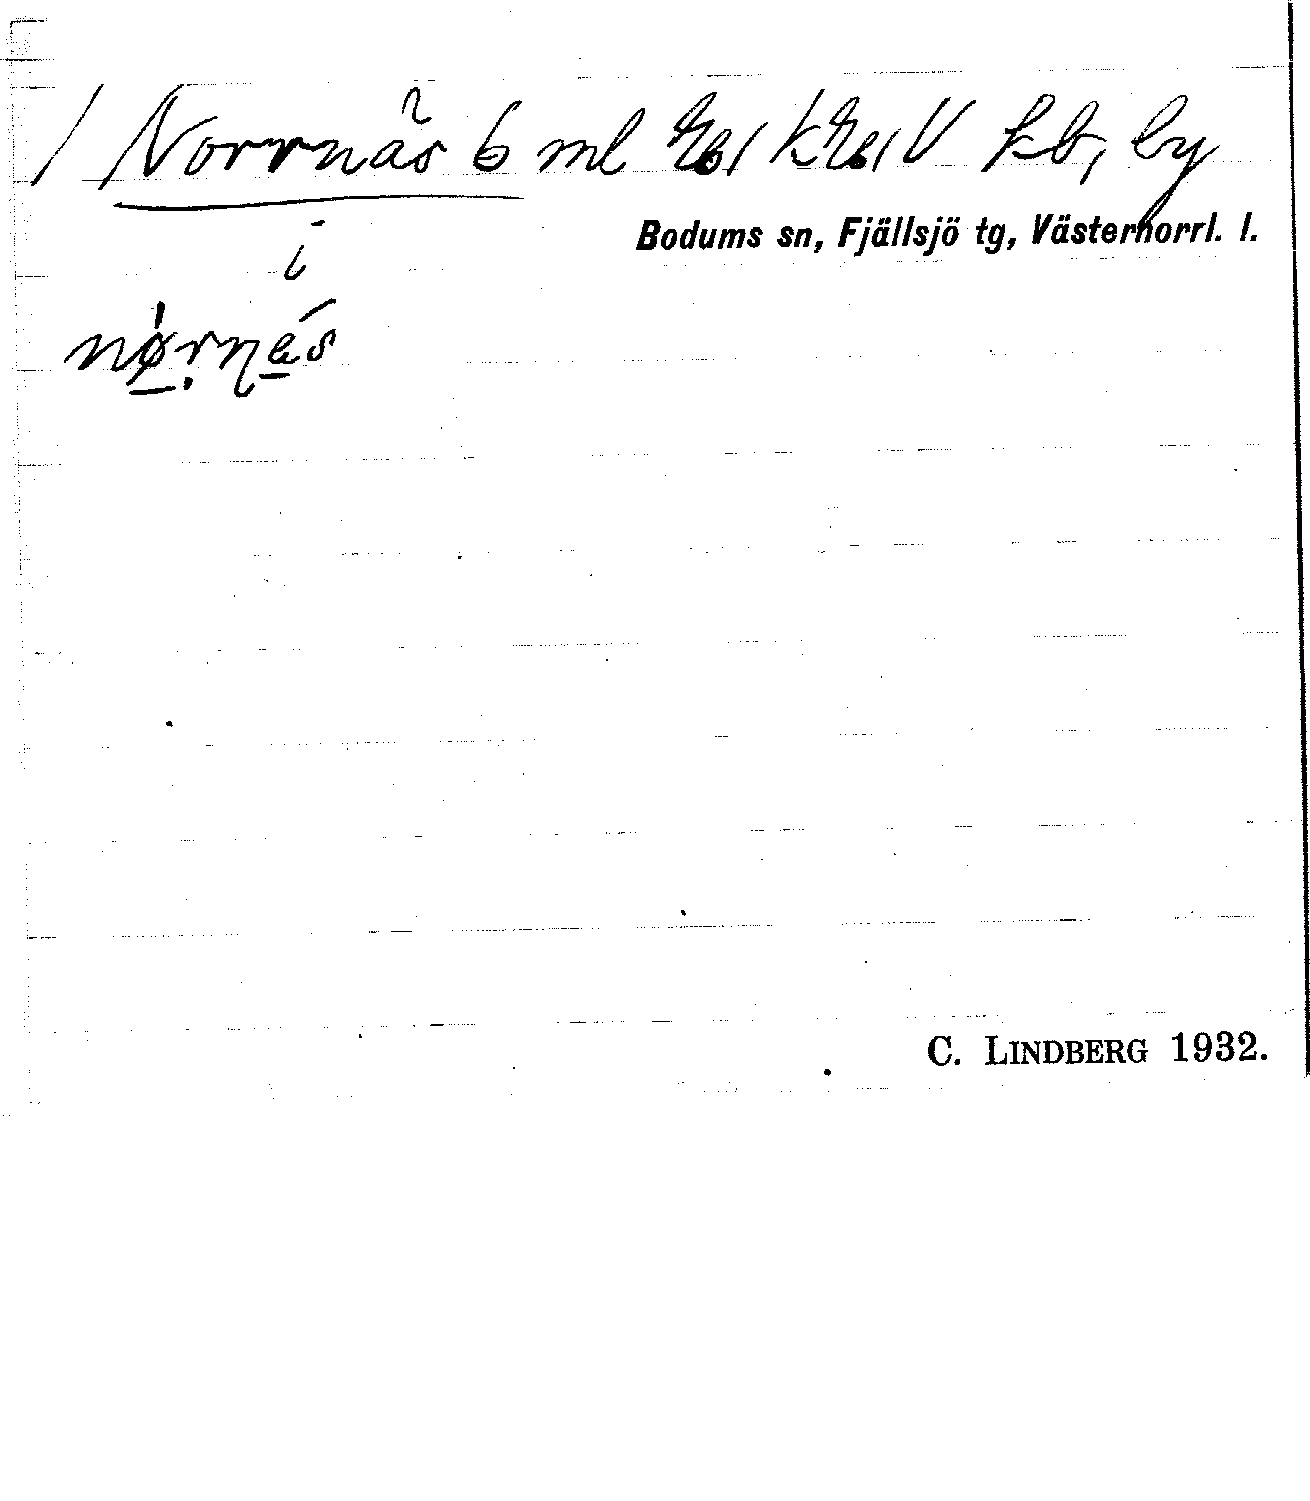 Norrnäs 6 ml kb, by
Bodums sn, Fjällsjö tg, Västernorrl. l.
i
C. LINDBERG 1932.